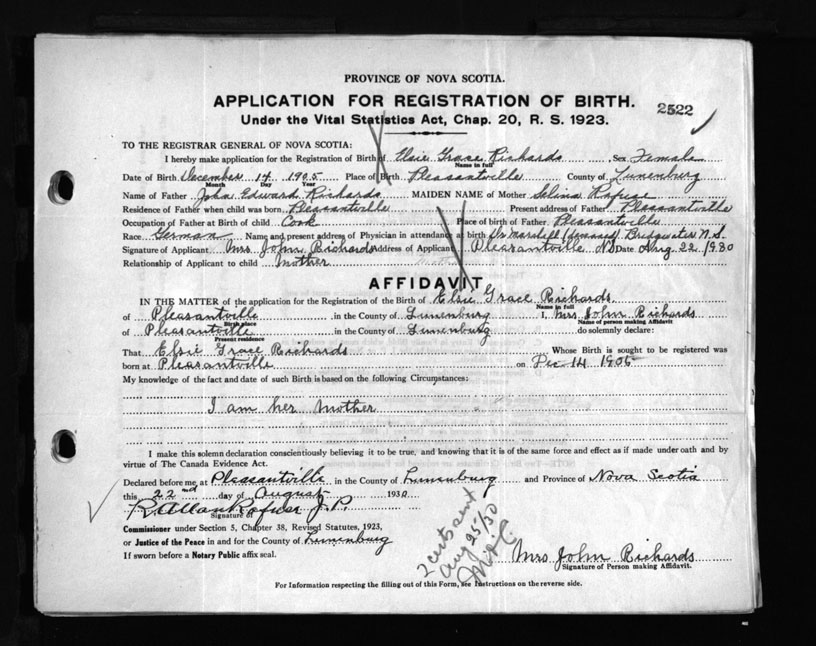 PROVINCE OF NOVA SCOTIA.
APPLICATION FOR REGISTRATION OF BIRTH. 2522
Under the Vital Statistics Act, Chap. 20, R. S. 1923.
TO THE REGISTRAR GENERAL OF NOVA SCOTIA:
I hereby make application for the Registration of Birth of Elsie Grace Richards Sex Female
Name in full
Date of Birth December 14 1905 Place of Birth Pleasantville County of Lunenburg
Month Day Year
Name of Father John Edward Richards MAIDEN NAME of Mother Selina Rafuse
Residence of Father when child was born Pleasantville Present address of Father Pleasantville
Occupation of Father at Birth of child Cook Place of birth of Father Pleasantville
Race German Name and present address of Physician in attendance at birth Dr Marshell (deceased) Bridgewater N.S.
Signature of Applicant Mrs John Richards Address of Applicant Pleasantville NS Date Aug 22 1930
Relationship of Applicant to child Mother
AFFIDAVIT
IN THE MATTER of the application for the Registration of the Birth of Elsie Grace Richards
Name in full
of Pleasantville in the County of Lunenburg I, Mrs John Richards
Birth place Name of person making Affidavit
of Pleasantville in the County of Lunenburg do solemnly declare:
Present residence
That Elsie Grace Richards Whose Birth is sought to be registered was
born at Pleasantville on Dec 14 1905
My knowledge of the fact and date of such Birth is based on the following Circumstances:
I am her Mother
I make this solemn declaration conscientiously believing it to be true, and knowing that it is of the same force and effect as if made under oath and by
virtue of The Canada Evidence Act.
Declared before me at Pleasantville in the County of Lunenburg and Province of Nova Scotia
this 22nd day of August 1930
R Allan Rafuse J.P.
Signature of
Commissioner under Section 5, Chapter 38, Revised Statutes, 1923,
or Justice of the Peace in and for the County of Lunenburg
If sworn before a Notary Public affix seal.
2 certs sent
Aug 25/30
Mrs John Richards
Signature of Person making Affidavit.
For Information respecting the filling out of this Form, see Instructions on the reverse side.